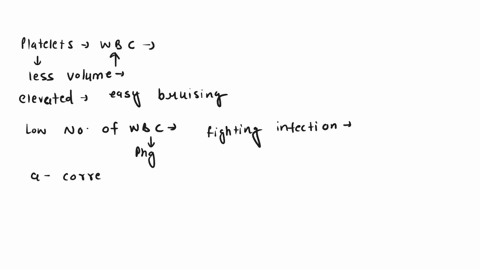 Platelets → WBC →
↓ ↑
less volume →
elevated → easy bruising
Low No. of WBC → fighting infection →
↓
Phg
a - corre